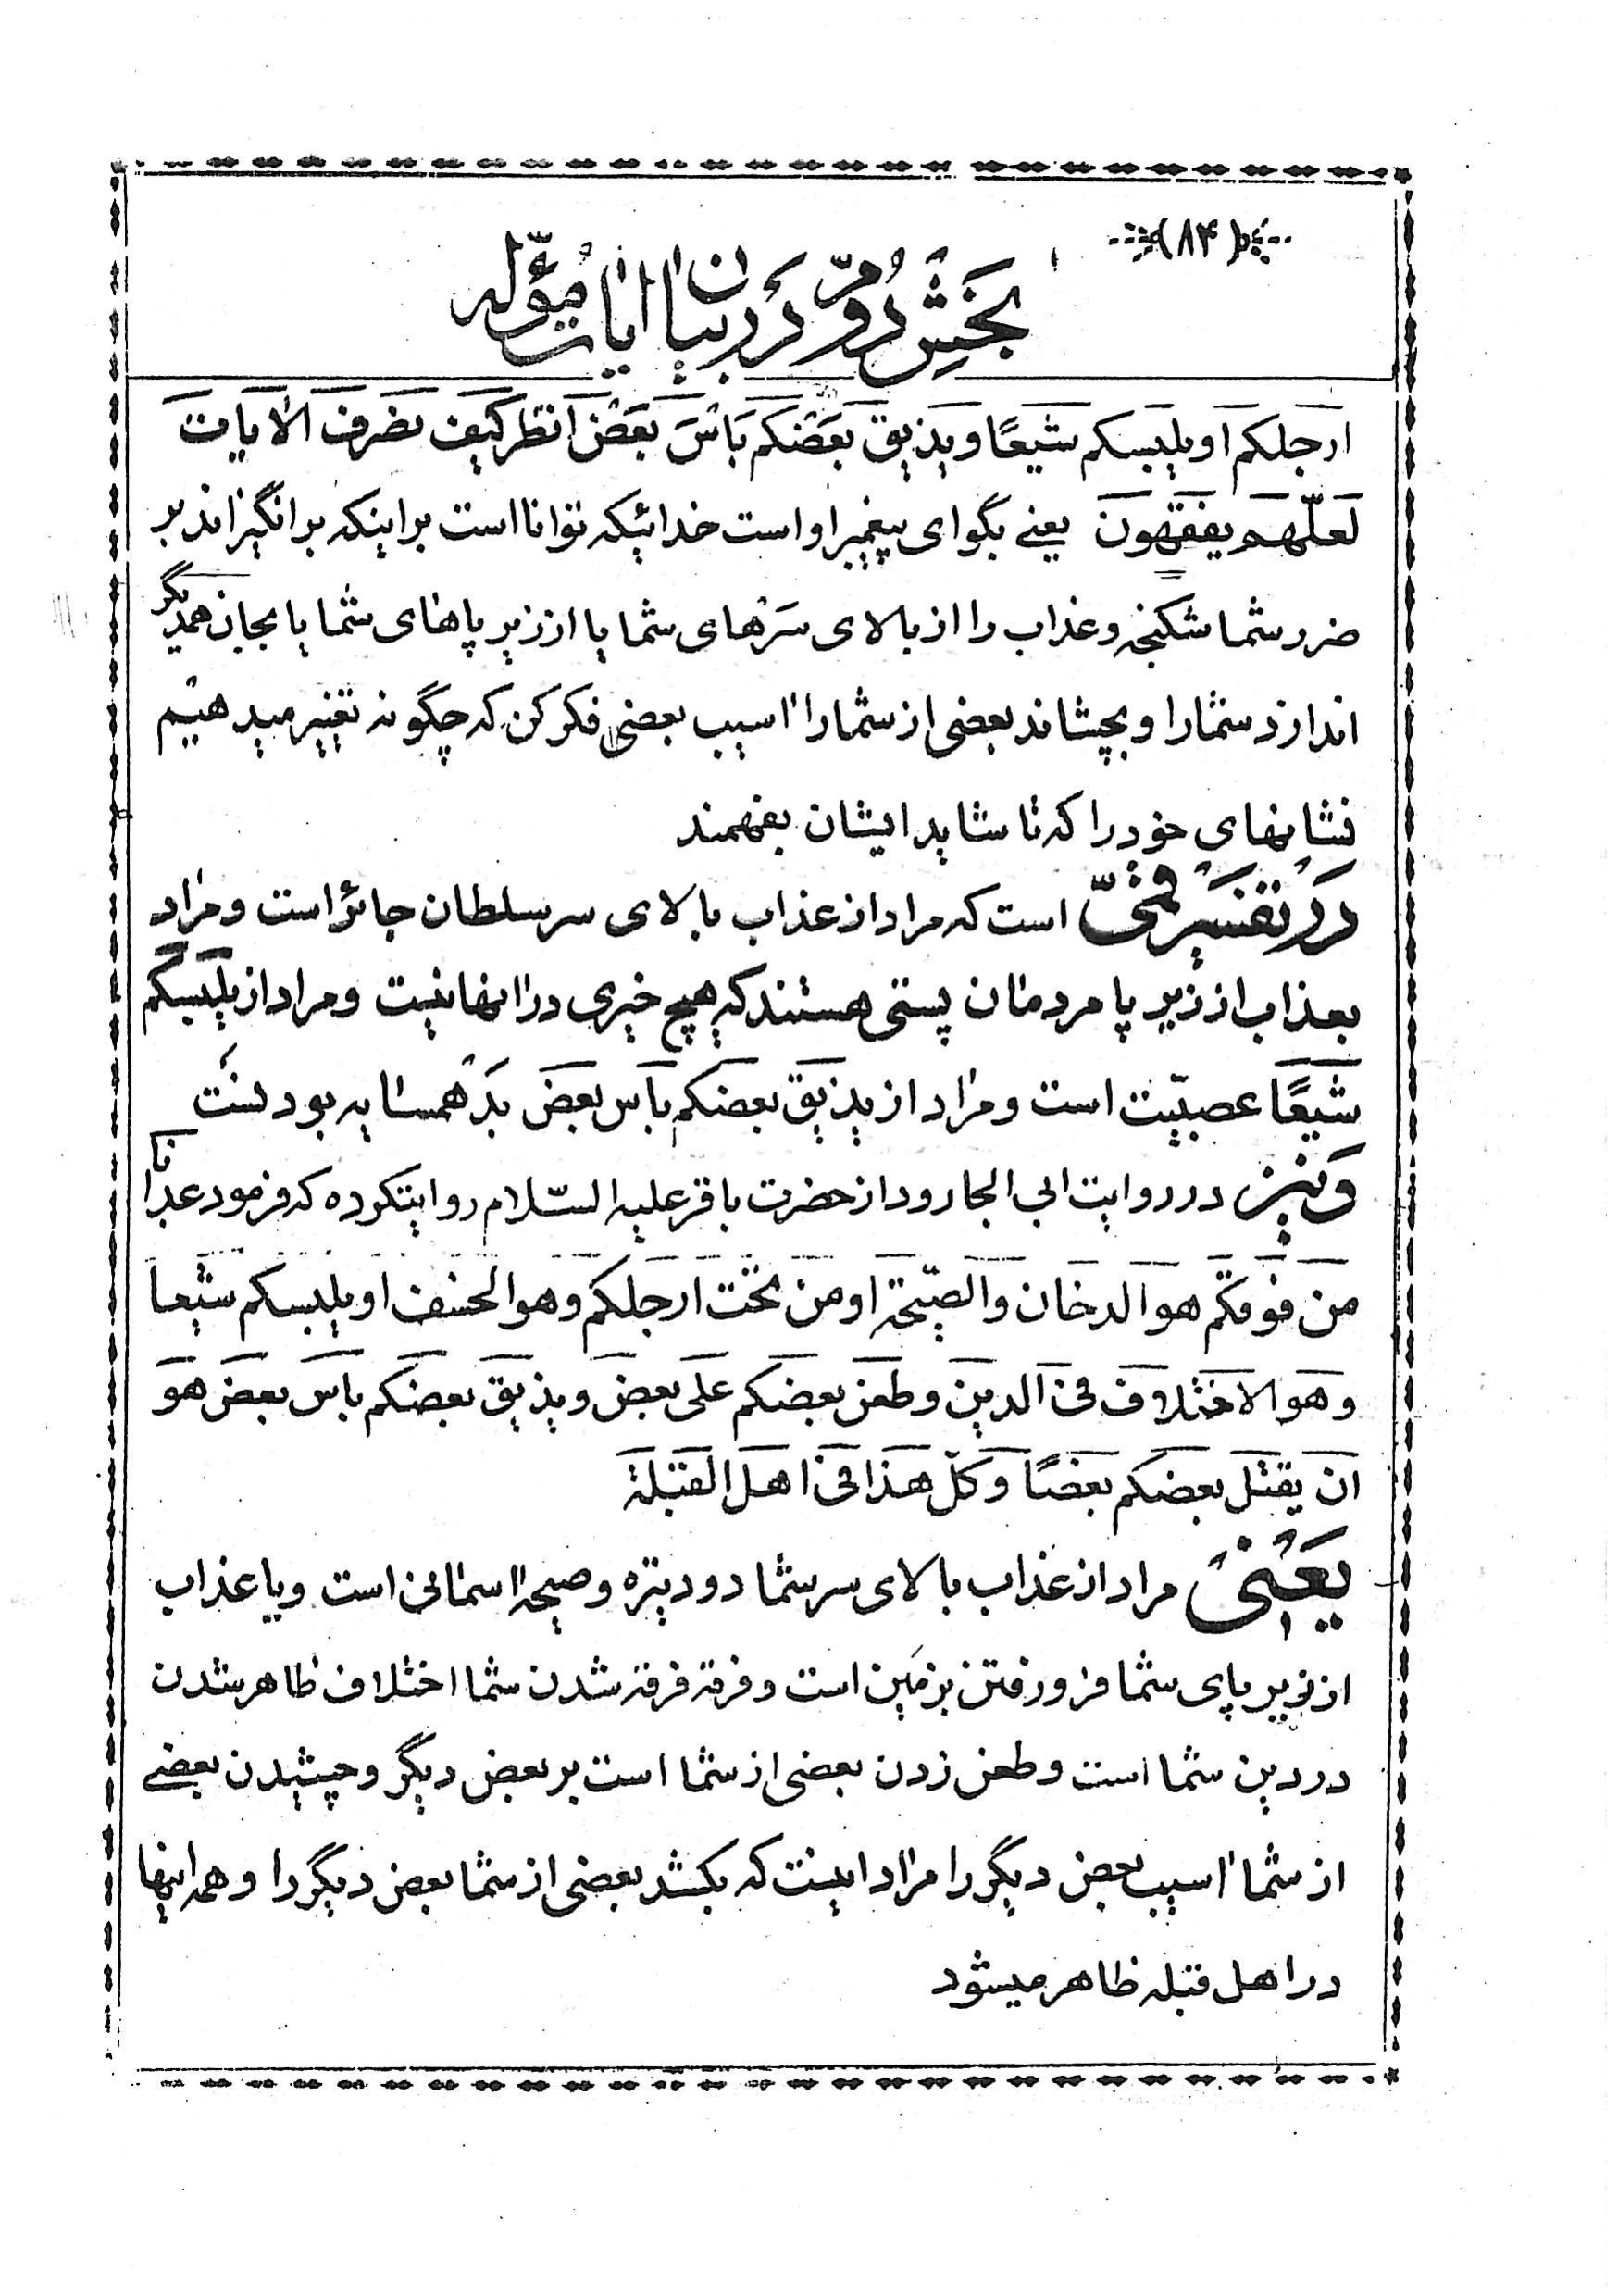 (۸۴)
بخش دوّم در بیان ایات مؤوّله
ارجلکم او یلبسکم شیعًا و یذیق بعضکم بأس بعض انظر کیف نصرف الایات
لعلّهم یفقهون یعنی بگو ای پیغمبر او است خدائیکه توانا است بر اینکه برانگیزاند بر
ضرر شما شکنجه و عذاب را از بالای سرهای شما یا از زیر پاهای شما یا بجان همدیگر
اندازد شما را و بچشاند بعضی از شما را اسیب بعضی فکر کن که چگونه تغییر میدهیم
نشانهای خود را که تا شاید ایشان بفهمند
در تفسیر قمّی است که مراد از عذاب بالای سر سلطان جائر است و مراد
بعذاب از زیر پا مردمان پستی هستند که هیچ خیری در انها نیست و مراد از یلبسکم
شیعًا عصبیّت است و مراد از یذیق بعضکم بأس بعض بد همسایه بودنست
و نیز در روایت ابی الجارود از حضرت باقر علیه السّلام روایتکرده که فرمود عذابا
من فوقکم هو الدخان و الصّیحة او من تحت ارجلکم و هو الخسف او یلبسکم شیعا
و هو الاختلاف فی الدین و طعن بعضکم علی بعض و یذیق بعضکم بأس بعض هو
ان یقتل بعضکم بعضًا و کلّ هذا فی اهل القبلة
یعنی مراد از عذاب بالای سر شما دود تیره و صیحه اسمانی است و یا عذاب
از زیر پای شما فرو رفتن بزمین است و فرقه فرقه شدن شما اختلاف ظاهر شدن
در دین شما است و طعن زدن بعضی از شما است بر بعض دیگر و چشیدن بعضی
از شما اسیب بعض دیگر را مراد اینست که بکشد بعضی از شما بعض دیگر را و همه اینها
در اهل قبله ظاهر میشود